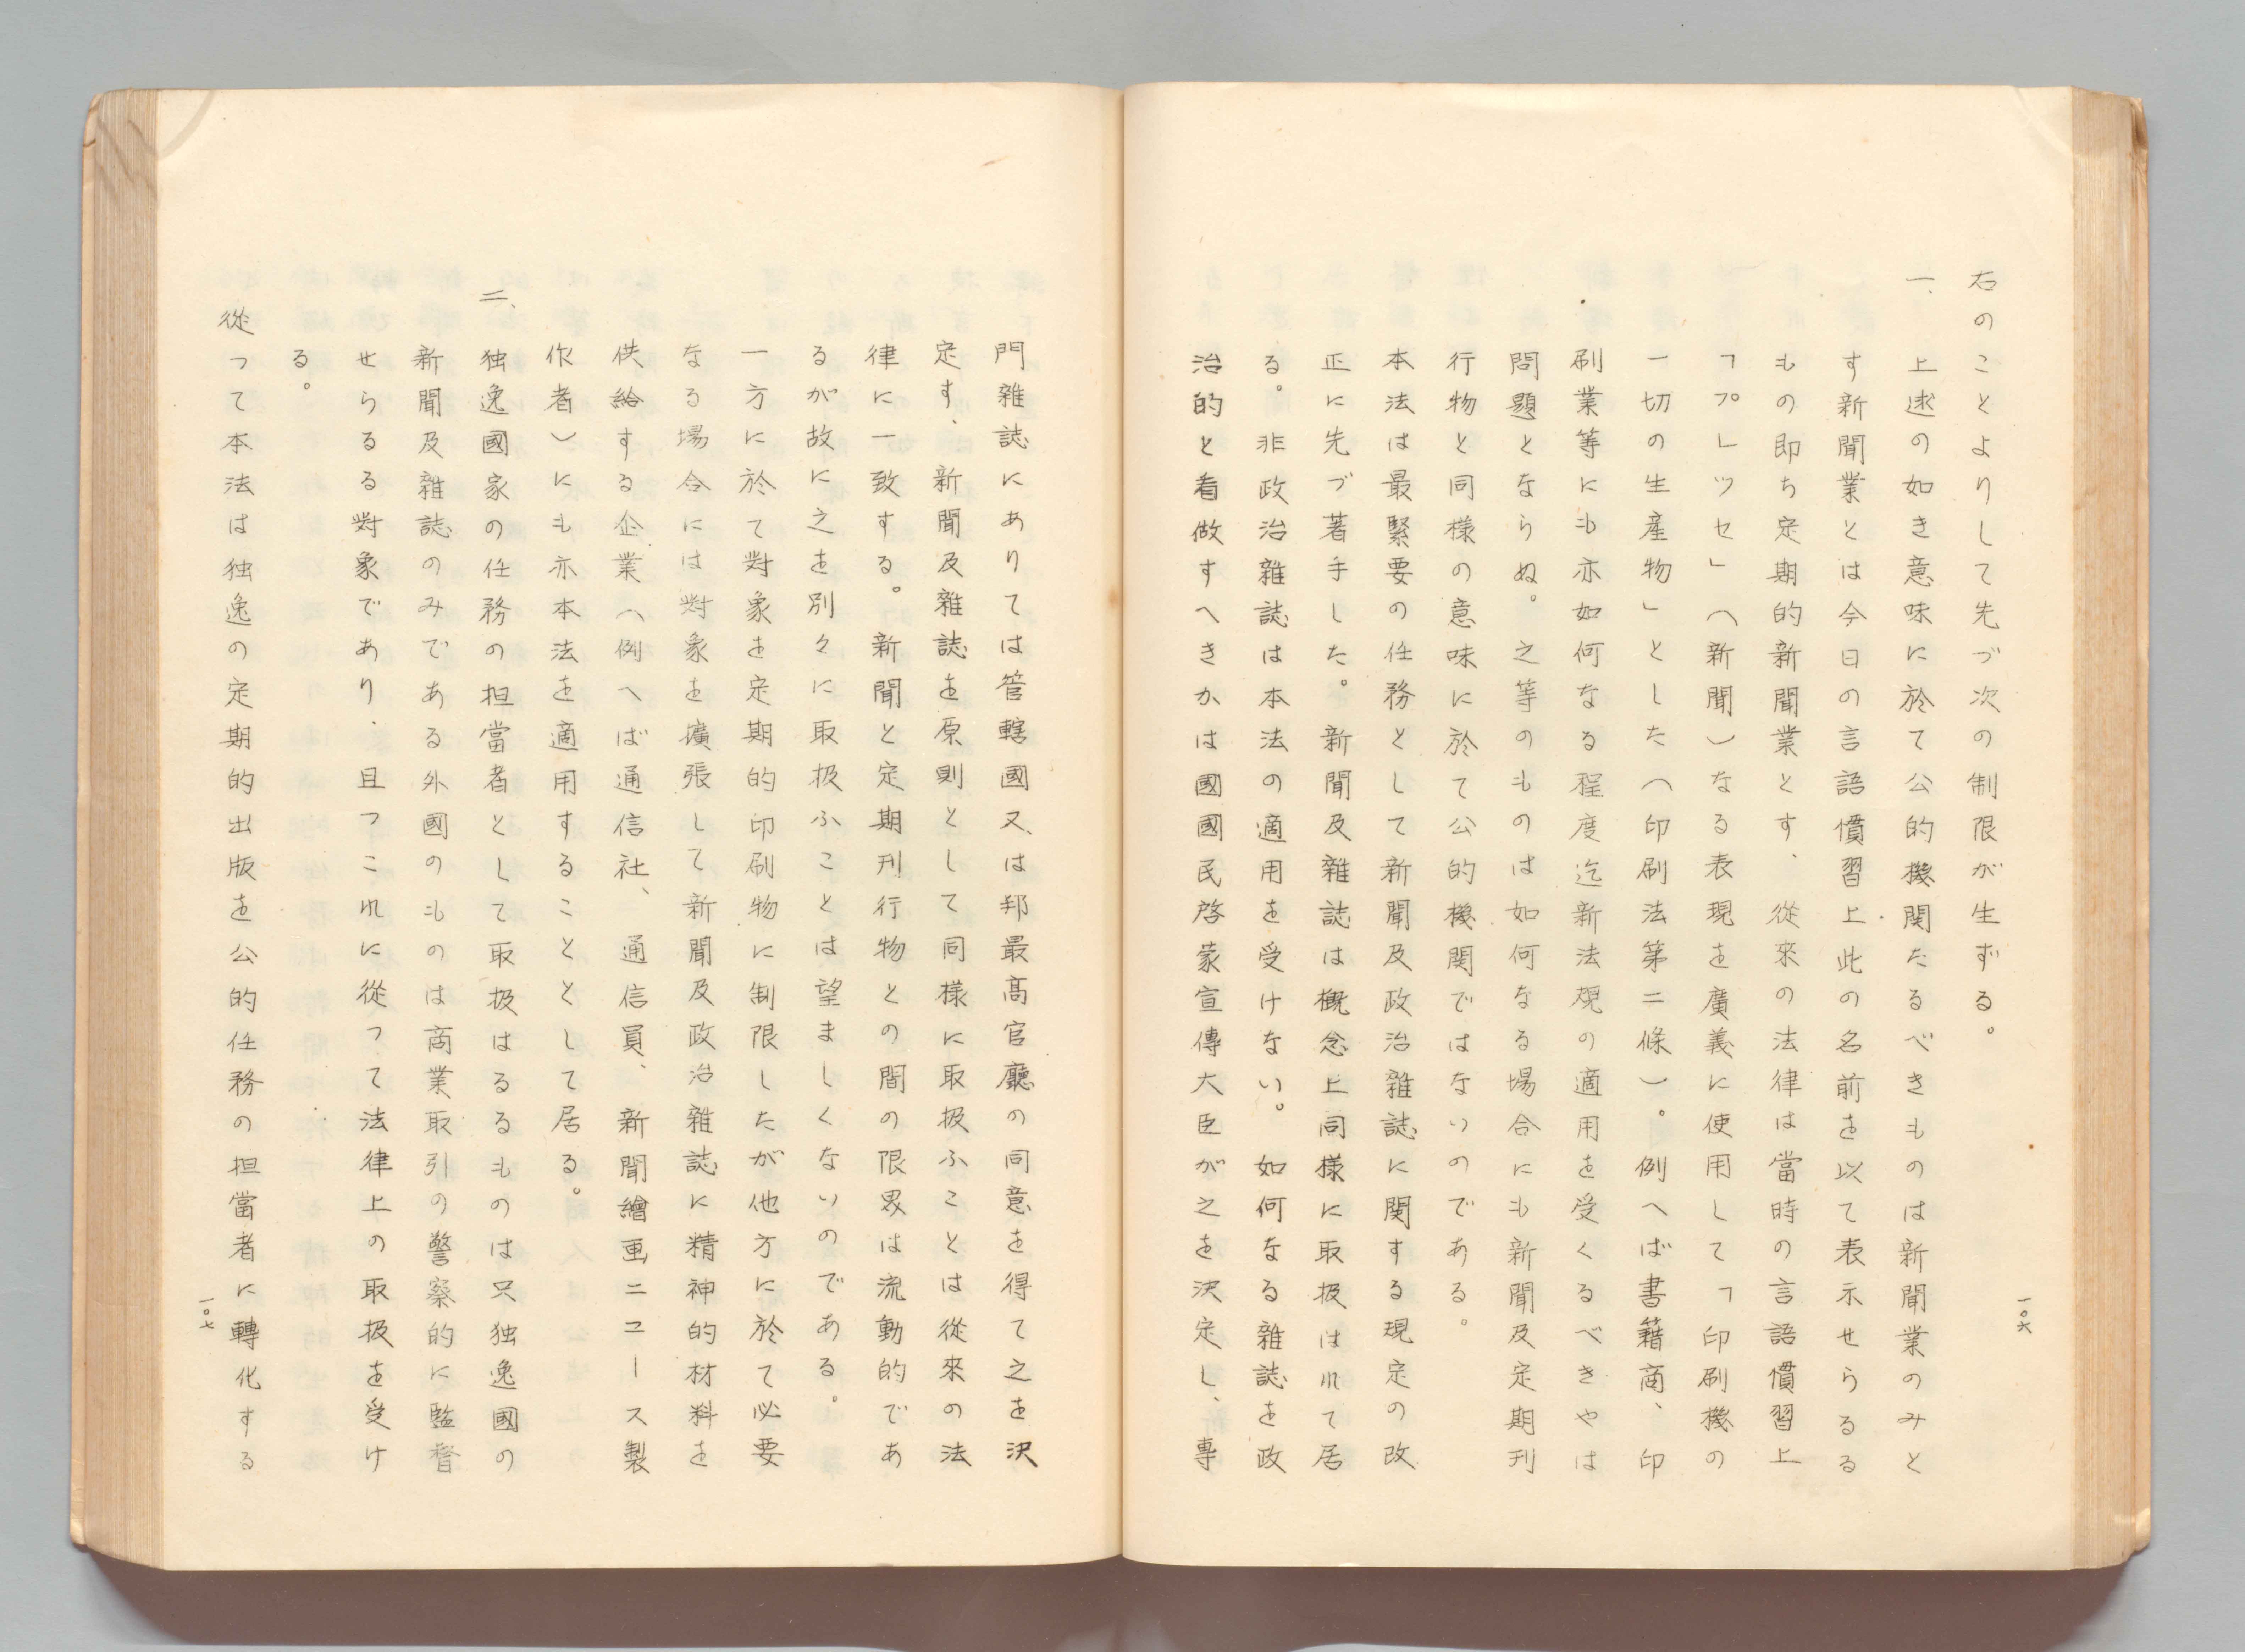 右のことよりして先づ次の制限が生ずる。
一、上述の如き意味に於て公的機関たるべきものは新聞業のみと
す新聞業とは今日の言語慣習上此の名前を以て表示せらるる
もの即ち定期的新聞業とす、從來の法律は當時の言語慣習上
「プレツセ」(新聞)なる表現を廣義に使用して「印刷機の
一切の生産物」とした(印刷法第二條)。例へば書籍商、印
刷業等にも亦如何なる程度迄新法規の適用を受くるべきやは
問題とならぬ。之等のものは如何なる場合にも新聞及定期刊
行物と同様の意味に於て公的機関ではないのである。
本法は最緊要の任務として新聞及政治雜誌に関する規定の改
正に先づ著手した。新聞及雜誌は概念上同樣に取扱はれて居
る。非政治雜誌は本法の適用を受けない。如何なる雜誌を政
治的と看做すへきかは國國民啓蒙宣傳大臣が之を決定し、專
一〇六
門雜誌にありては管轄國又は邦最高官廳の同意を得て之を決
定す、新聞及雜誌を原則として同樣に取扱ふことは從來の法
律に一致する。新聞と定期刊行物との間の限界は流動的であ
るが故に之を別々に取扱ふことは望ましくないのである。
一方に於て對象を定期的印刷物に制限したが他方に於て必要
なる場合には對象を擴張して新聞及政治雜誌に精神的材料を
供給する企業(例へば通信社、通信員、新聞繪画ニユース製
作者)にも亦本法を適用することとして居る。
二、独逸國家の任務の担當者として取扱はるるものは只独逸國の
新聞及雜誌のみである外國のものは商業取引の警察的に監督
せらるる對象であり、且つこれに從つて法律上の取扱を受け
る。
從つて本法は独逸の定期的出版を公的任務の担當者に轉化する
一〇七